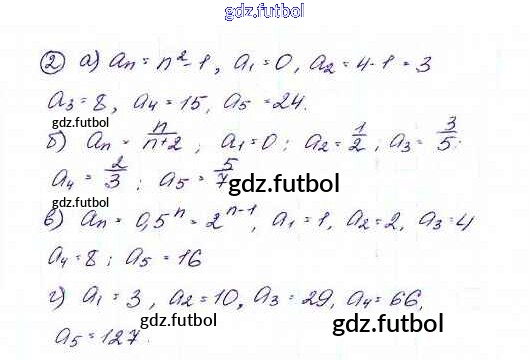 gdz.futbol
gdz.futbol
② а) aₙ = n² - 1, a₁ = 0, a₂ = 4 - 1 = 3
a₃ = 8, a₄ = 15, a₅ = 24.
gdz.futbol
б) aₙ = n/n+2; a₁ = 0; a₂ = 1/2; a₃ = 3/5;
gdz.futbol
a₄ = 2/3; a₅ = 5/7
gdz.futbol
gdz.futbol
в) aₙ = 0,5ⁿ = 2ⁿ⁻¹, a₁ = 1, a₂ = 2, a₃ = 4
a₄ = 8; a₅ = 16
г) a₁ = 3, a₂ = 10, a₃ = 29, a₄ = 66,
gdz.futbol
gdz.futbol
a₅ = 127.
gdz.futbol